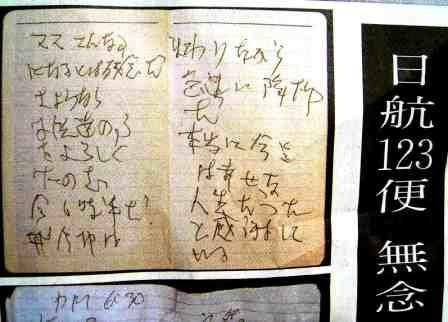 日航123便 無念
ママ こんな事
になるとは残念だ
さようなら
子供達の事
をよろしく
たのむ
今6時半だ
飛行機は
まわりながら
急速に降下中
だ
本当に今迄
は幸せな
人生だった
と感謝して
いる
6 30